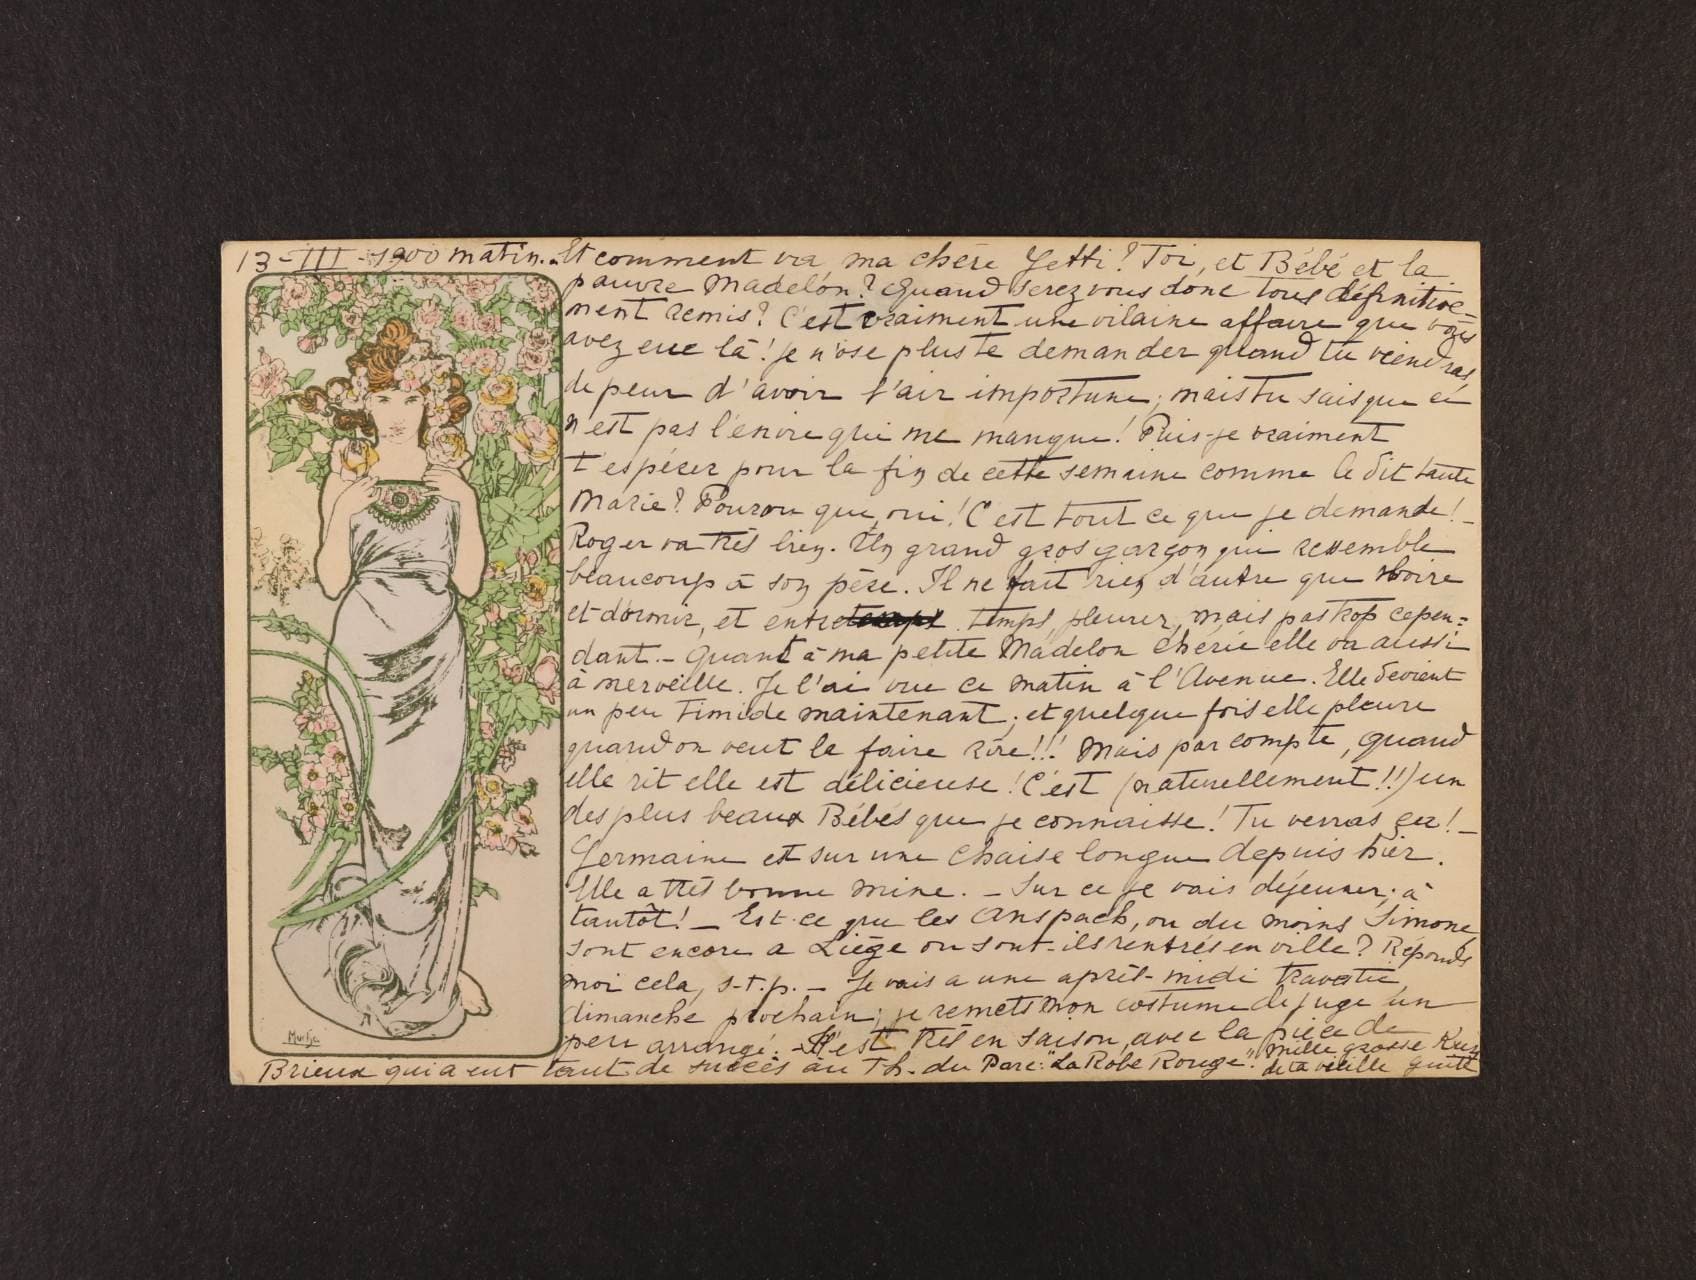 13-III-1900 matin. Et comment va ma chère Yetti? Toi, et Bébé et la
pauvre Madelon? Quand serez vous donc tous définitive=
ment remis? C'est vraiment une vilaine affaire que vous
avez eue là! Je n'ose plus te demander quand tu viendras,
de peur d'avoir l'air importune; mais tu sais que ce
n'est pas l'envie qui me manque! Puis-je vraiment
t'espérer pour la fin de cette semaine comme le dit tante
Marie? Pourvu que oui! C'est tout ce que je demande! -
Roger va très bien. Un grand gros garçon qui ressemble
beaucoup à son père. Il ne fait rien d'autre que boire
et dormir, et entre temps pleurer, mais pas trop cepen=
dant. - Quant à ma petite Madelon chérie elle va aussi
à merveille. Je l'ai vue ce matin à l'Avenue. Elle devient
un peu timide maintenant; et quelque fois elle pleure
quand on veut la faire rire!!! Mais par compte, quand
elle rit elle est délicieuse! C'est (naturellement!!) un
des plus beaux Bébés que je connaisse! Tu verras ça! -
Germaine est sur une chaise longue depuis hier.
Elle a très bonne mine. - Sur ce je vais déjeuner; à
tantôt! - Est-ce que les Anspach, ou du moins Simone
sont encore a Liège ou sont-ils rentrés en ville? Réponds
moi cela, s.t.p. - Je vais a une après-midi travestie
dimanche prochain; je remets mon costume de juge un
peu arrangé. - Il est très en saison, avec la pièce de
Brieux qui a eut tant de succès au Th. du Parc: "La Robe Rouge".
Mille grosse
de ta vieille
Mucha